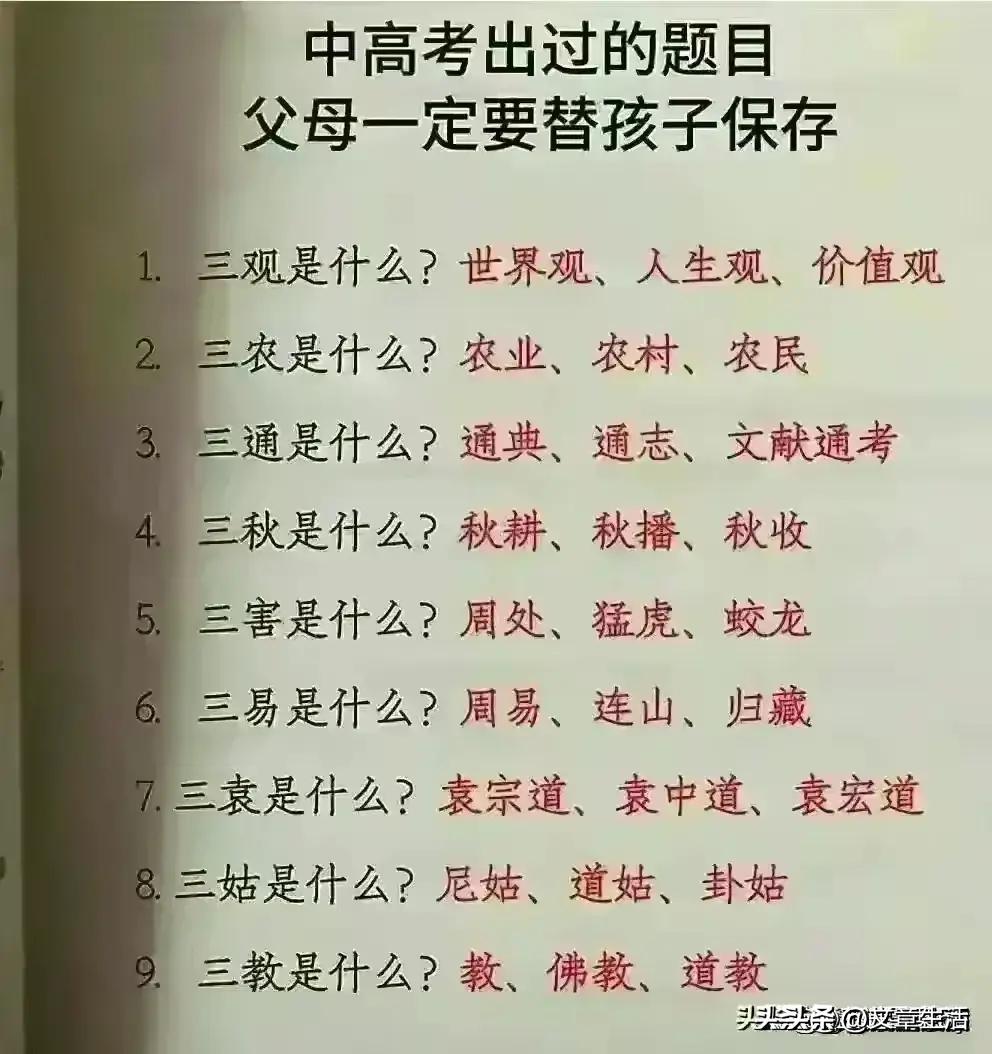 中高考出过的题目
父母一定要替孩子保存
1. 三观是什么? 世界观、人生观、价值观
2. 三农是什么? 农业、农村、农民
3. 三通是什么? 通典、通志、文献通考
4. 三秋是什么? 秋耕、秋播、秋收
5. 三害是什么? 周处、猛虎、蛟龙
6. 三易是什么? 周易、连山、归藏
7. 三袁是什么? 袁宗道、袁中道、袁宏道
8. 三姑是什么? 尼姑、道姑、卦姑
9. 三教是什么? 教、佛教、道教
头条 @文章生活